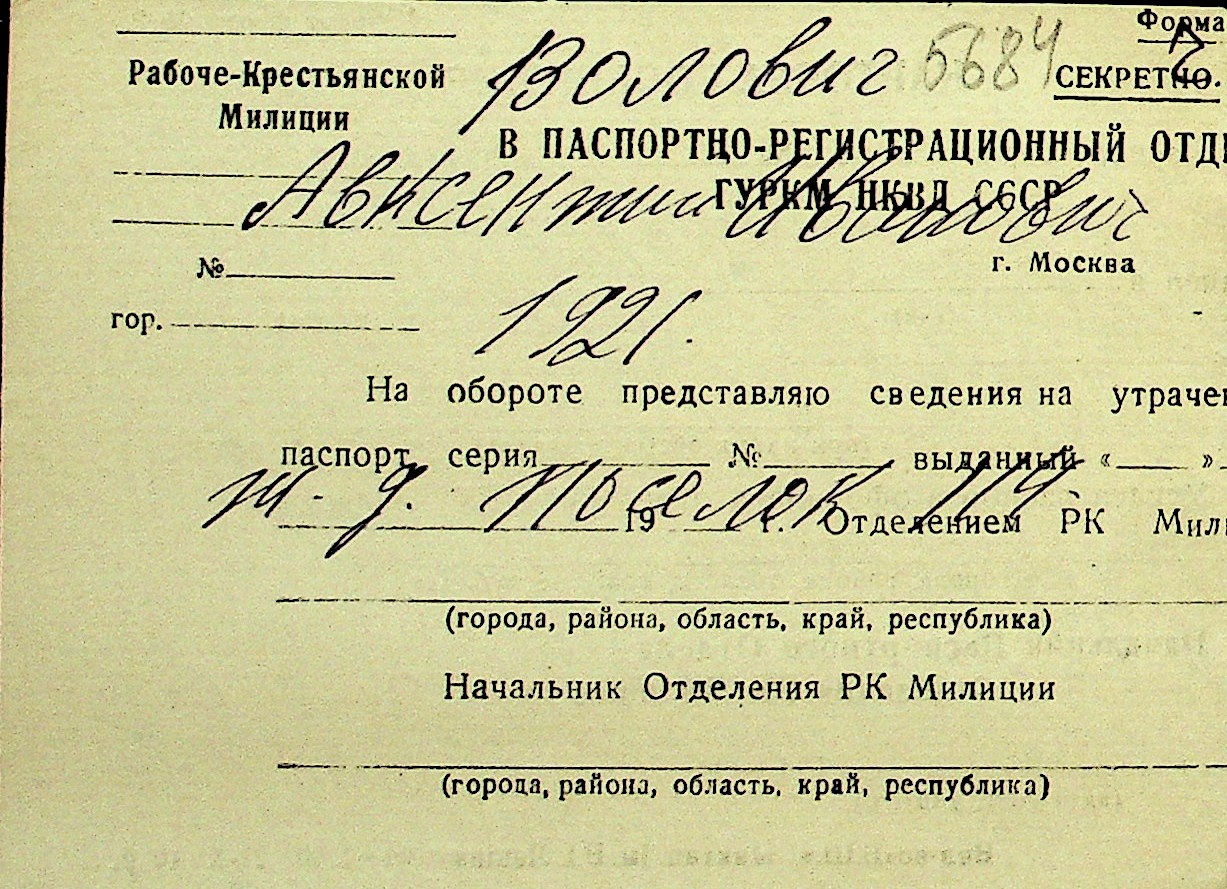 Форма
Волович 5684
СЕКРЕТНО.
Рабоче-Крестьянской
Милиции
В ПАСПОРТНО-РЕГИСТРАЦИОННЫЙ ОТД
ГУРКМ НКВД СССР
Авксентий Иванович
г. Москва
№
гор.
1921.
На обороте представляю сведения на утрачен
паспорт серия № выданный « »
ж. д. поселок 119.
19 г. Отделением РК Мил
(города, района, область, край, республика)
Начальник Отделения РК Милиции
(города, района, область, край, республика)